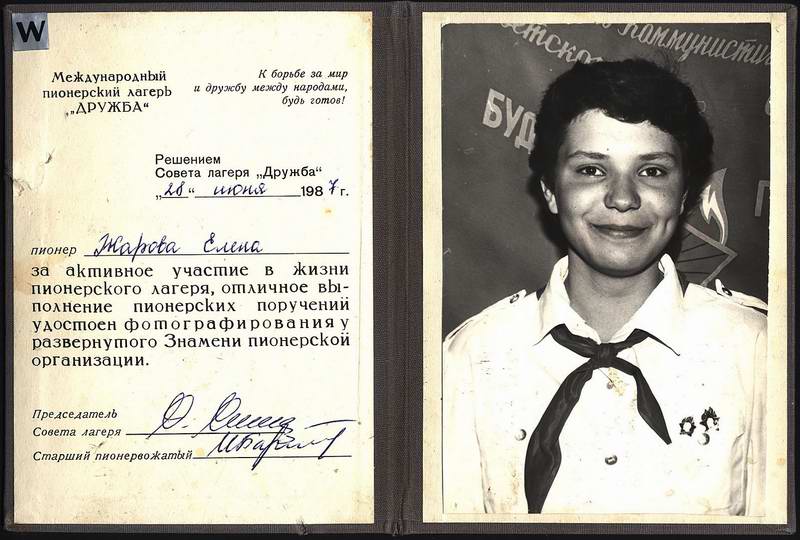 W
Международный
пионерский лагерь
„ДРУЖБА“
К борьбе за мир
и дружбу между народами,
будь готов!
Решением
Совета лагеря „Дружба“
„28“ июня 1987 г.
пионер Жарова Елена
за активное участие в жизни
пионерского лагеря, отличное вы-
полнение пионерских поручений
удостоен фотографирования у
развернутого Знамени пионерской
организации.
Председатель
Совета лагеря
Старший пионервожатый
коммунистич
етского
БУД